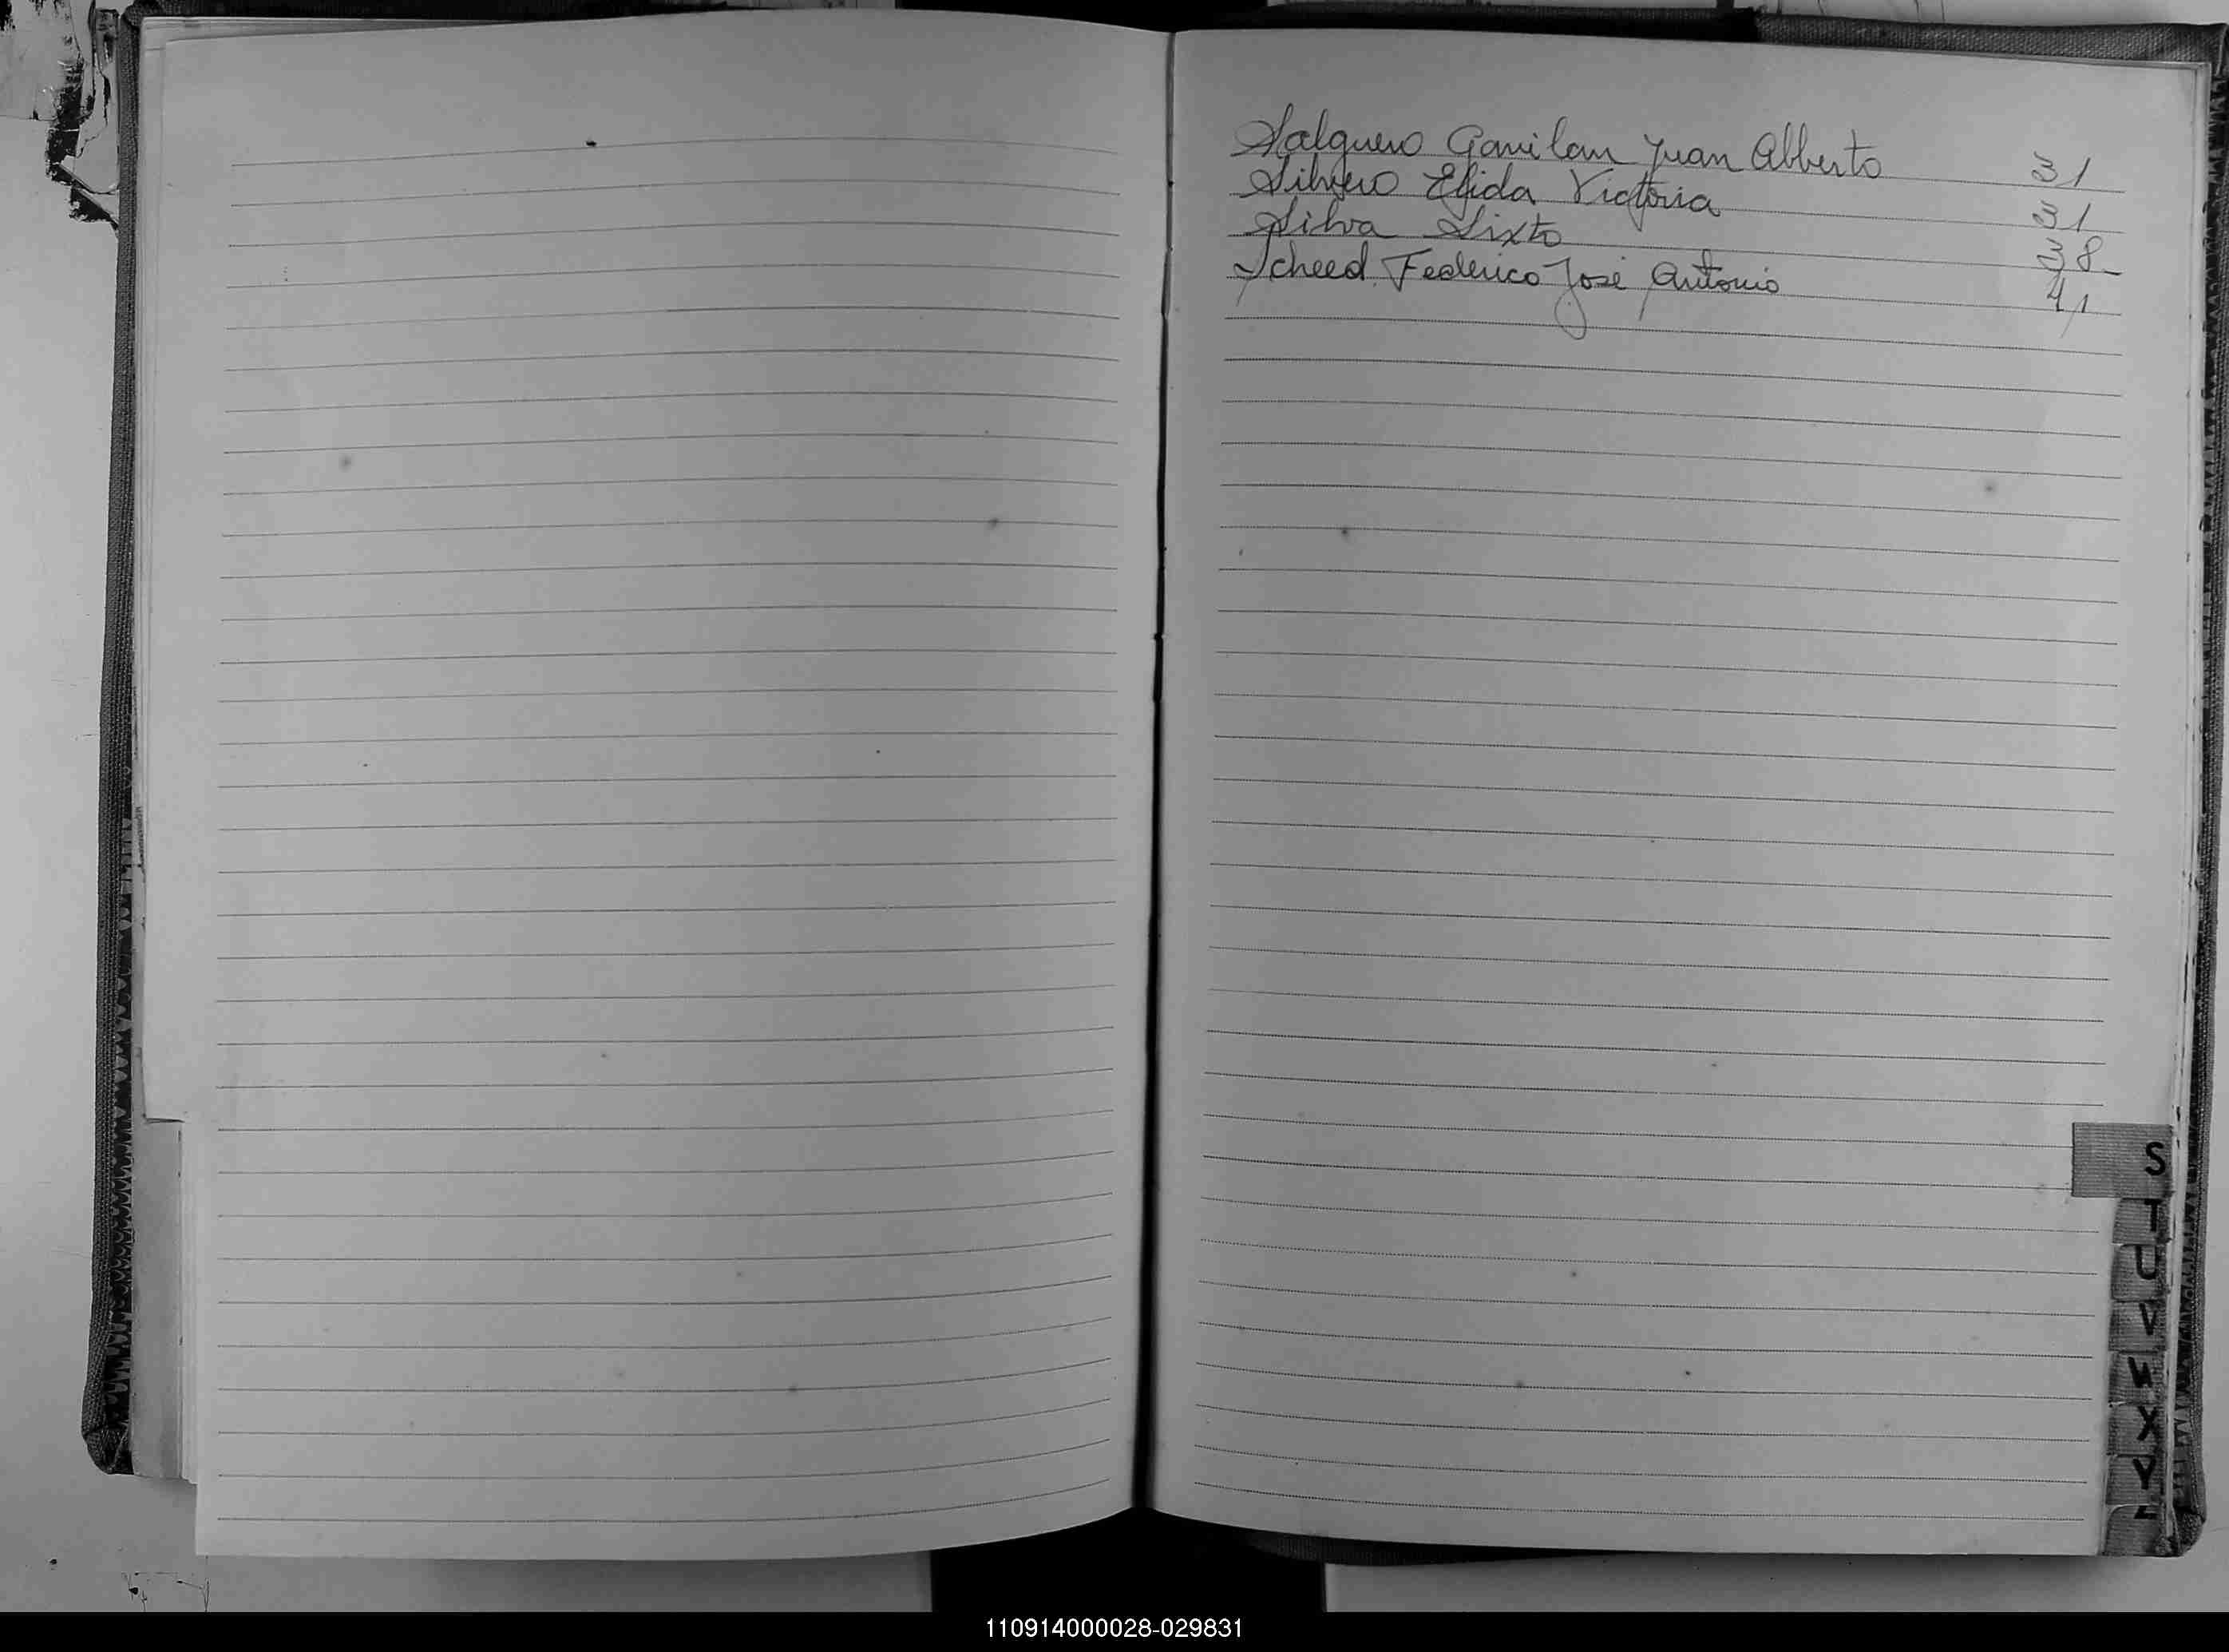 Salguero Gavilan Juan Alberto 31
Silvero Elida Victoria 31
Silva Sixto 38
Scheed Federico José Antonio 41
S
T
U
V
W
X
Y
Z
110914000028-029831